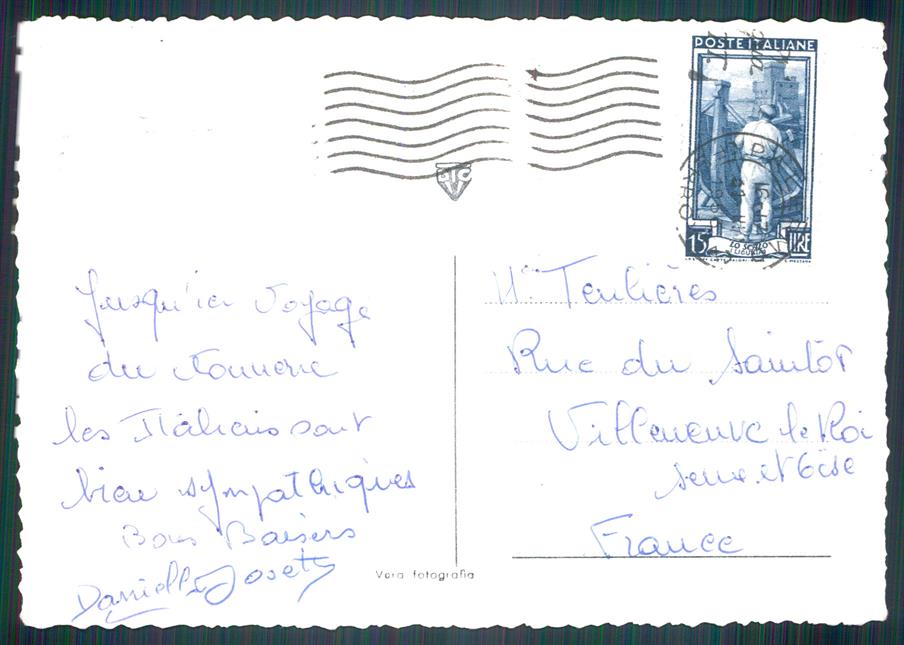 POSTE ITALIANE
15 LO SCALO LIRE
(LIGURIA)
BTC
Jusqu'ici Voyage
du Tonnerre
les Italiens sont
bien sympathiques
Bons Baisers
Danielle Josety
Teulières
Rue du Saintôt
Villeneuve le Roi
Seine et Oise
France
Vera fotografia